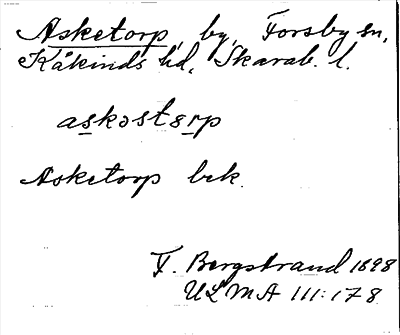 Asketorp, by, Forsby sn,
Kåkinds hd, Skarab. l.
askəstɵrp
Asketorp bek.
F. Bergstrand 1898
ULMA 111:178